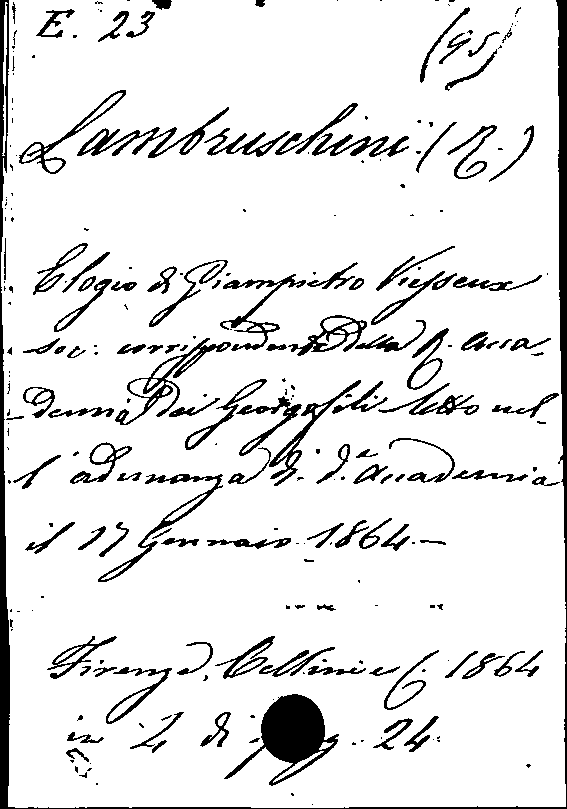 E. 23
(95)
Lambruschini (R.)
Elogio di Giampietro Vieusseux
soc. corrispondente della R. Acca-
demia dei Georgofili letto nel-
l'adunanza di d.a Accademia
il 17 Gennaio 1864.—
Firenze, Cellini e C. 1864
in di pag. 24.